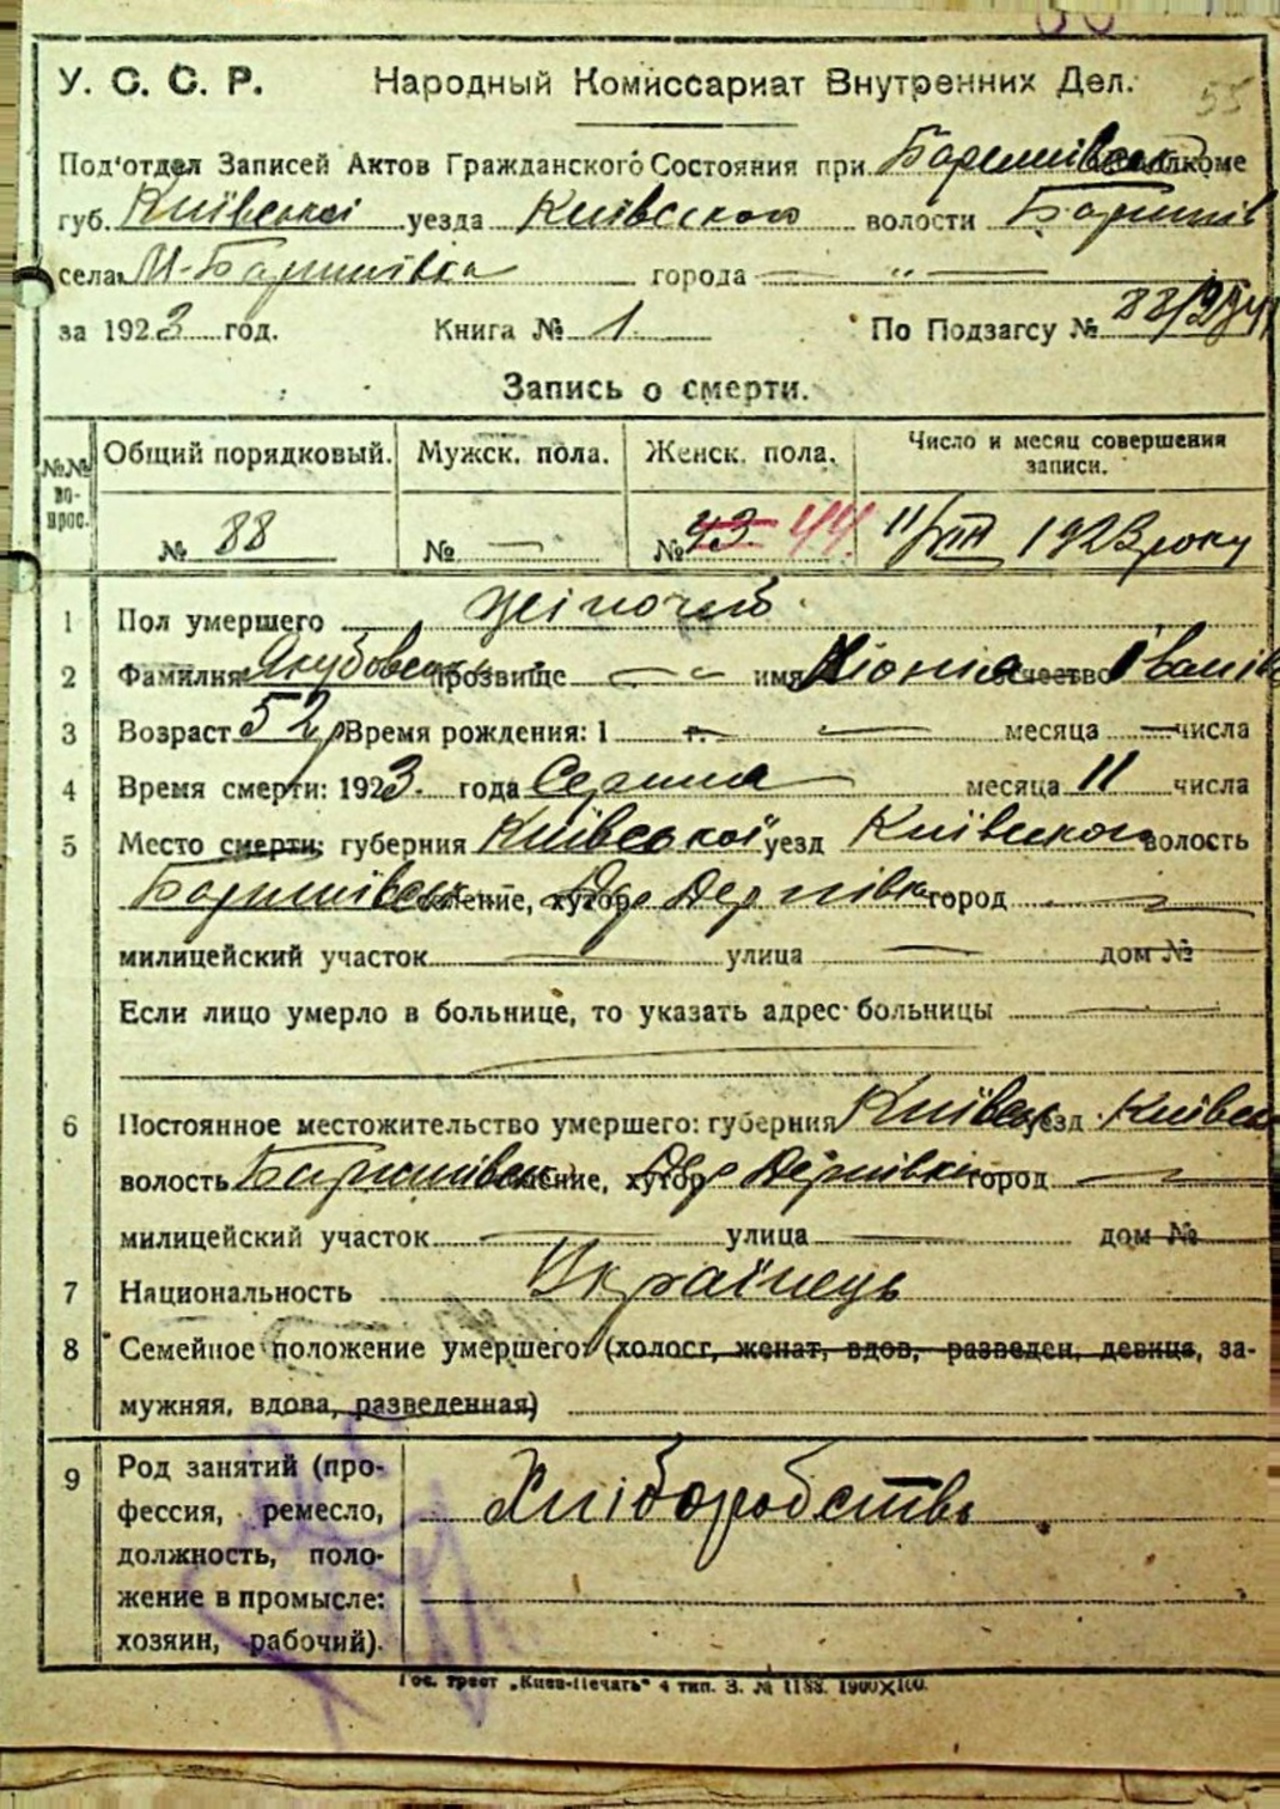 55
У. С. С. Р. Народный Комиссариат Внутренних Дел.
Под'отдел Записей Актов Гражданского Состояния при Баришівськ
губ. Київської уезда Київського волости Баришів
села М-Баришівка города — " —
за 1923 год. Книга № 1. По Подзагсу № 88/
Запись о смерти.
№№ вопрос. Общий порядковый. Мужск. пола. Женск. пола. Число и месяц совершения записи.
№ 88 № — № 43 44. 11/VIII 1923 року
1 Пол умершего жіночий
2 Фамилия Якубовськ прозвище — " имя Хіонія отчество Іванів
3 Возраст 52 р Время рождения: 1 — г. — месяца — числа
4 Время смерти: 1923. года Серпня месяца 11 числа
5 Место смерти: губерния Київської уезд Київського волость
Баришівськ селение, хутор Дернівка город —
милицейский участок — улица — дом №
Если лицо умерло в больнице, то указать адрес больницы —
6 Постоянное местожительство умершего: губерния Київськ уезд Київськ
волость Баришівськ селение, хутор Дернівка город —
милицейский участок — улица — дом №
7 Национальность Українець
8 Семейное положение умершего: (холост, женат, вдов, разведен, девица, за-
мужняя, вдова, разведенная)
9 Род занятий (про-
фессия, ремесло, Хліборобство
должность, поло-
жение в промысле:
хозяин, рабочий).
Гос. трест „Киев-Печать" 4 тип. З. № 1188. 1900×100.